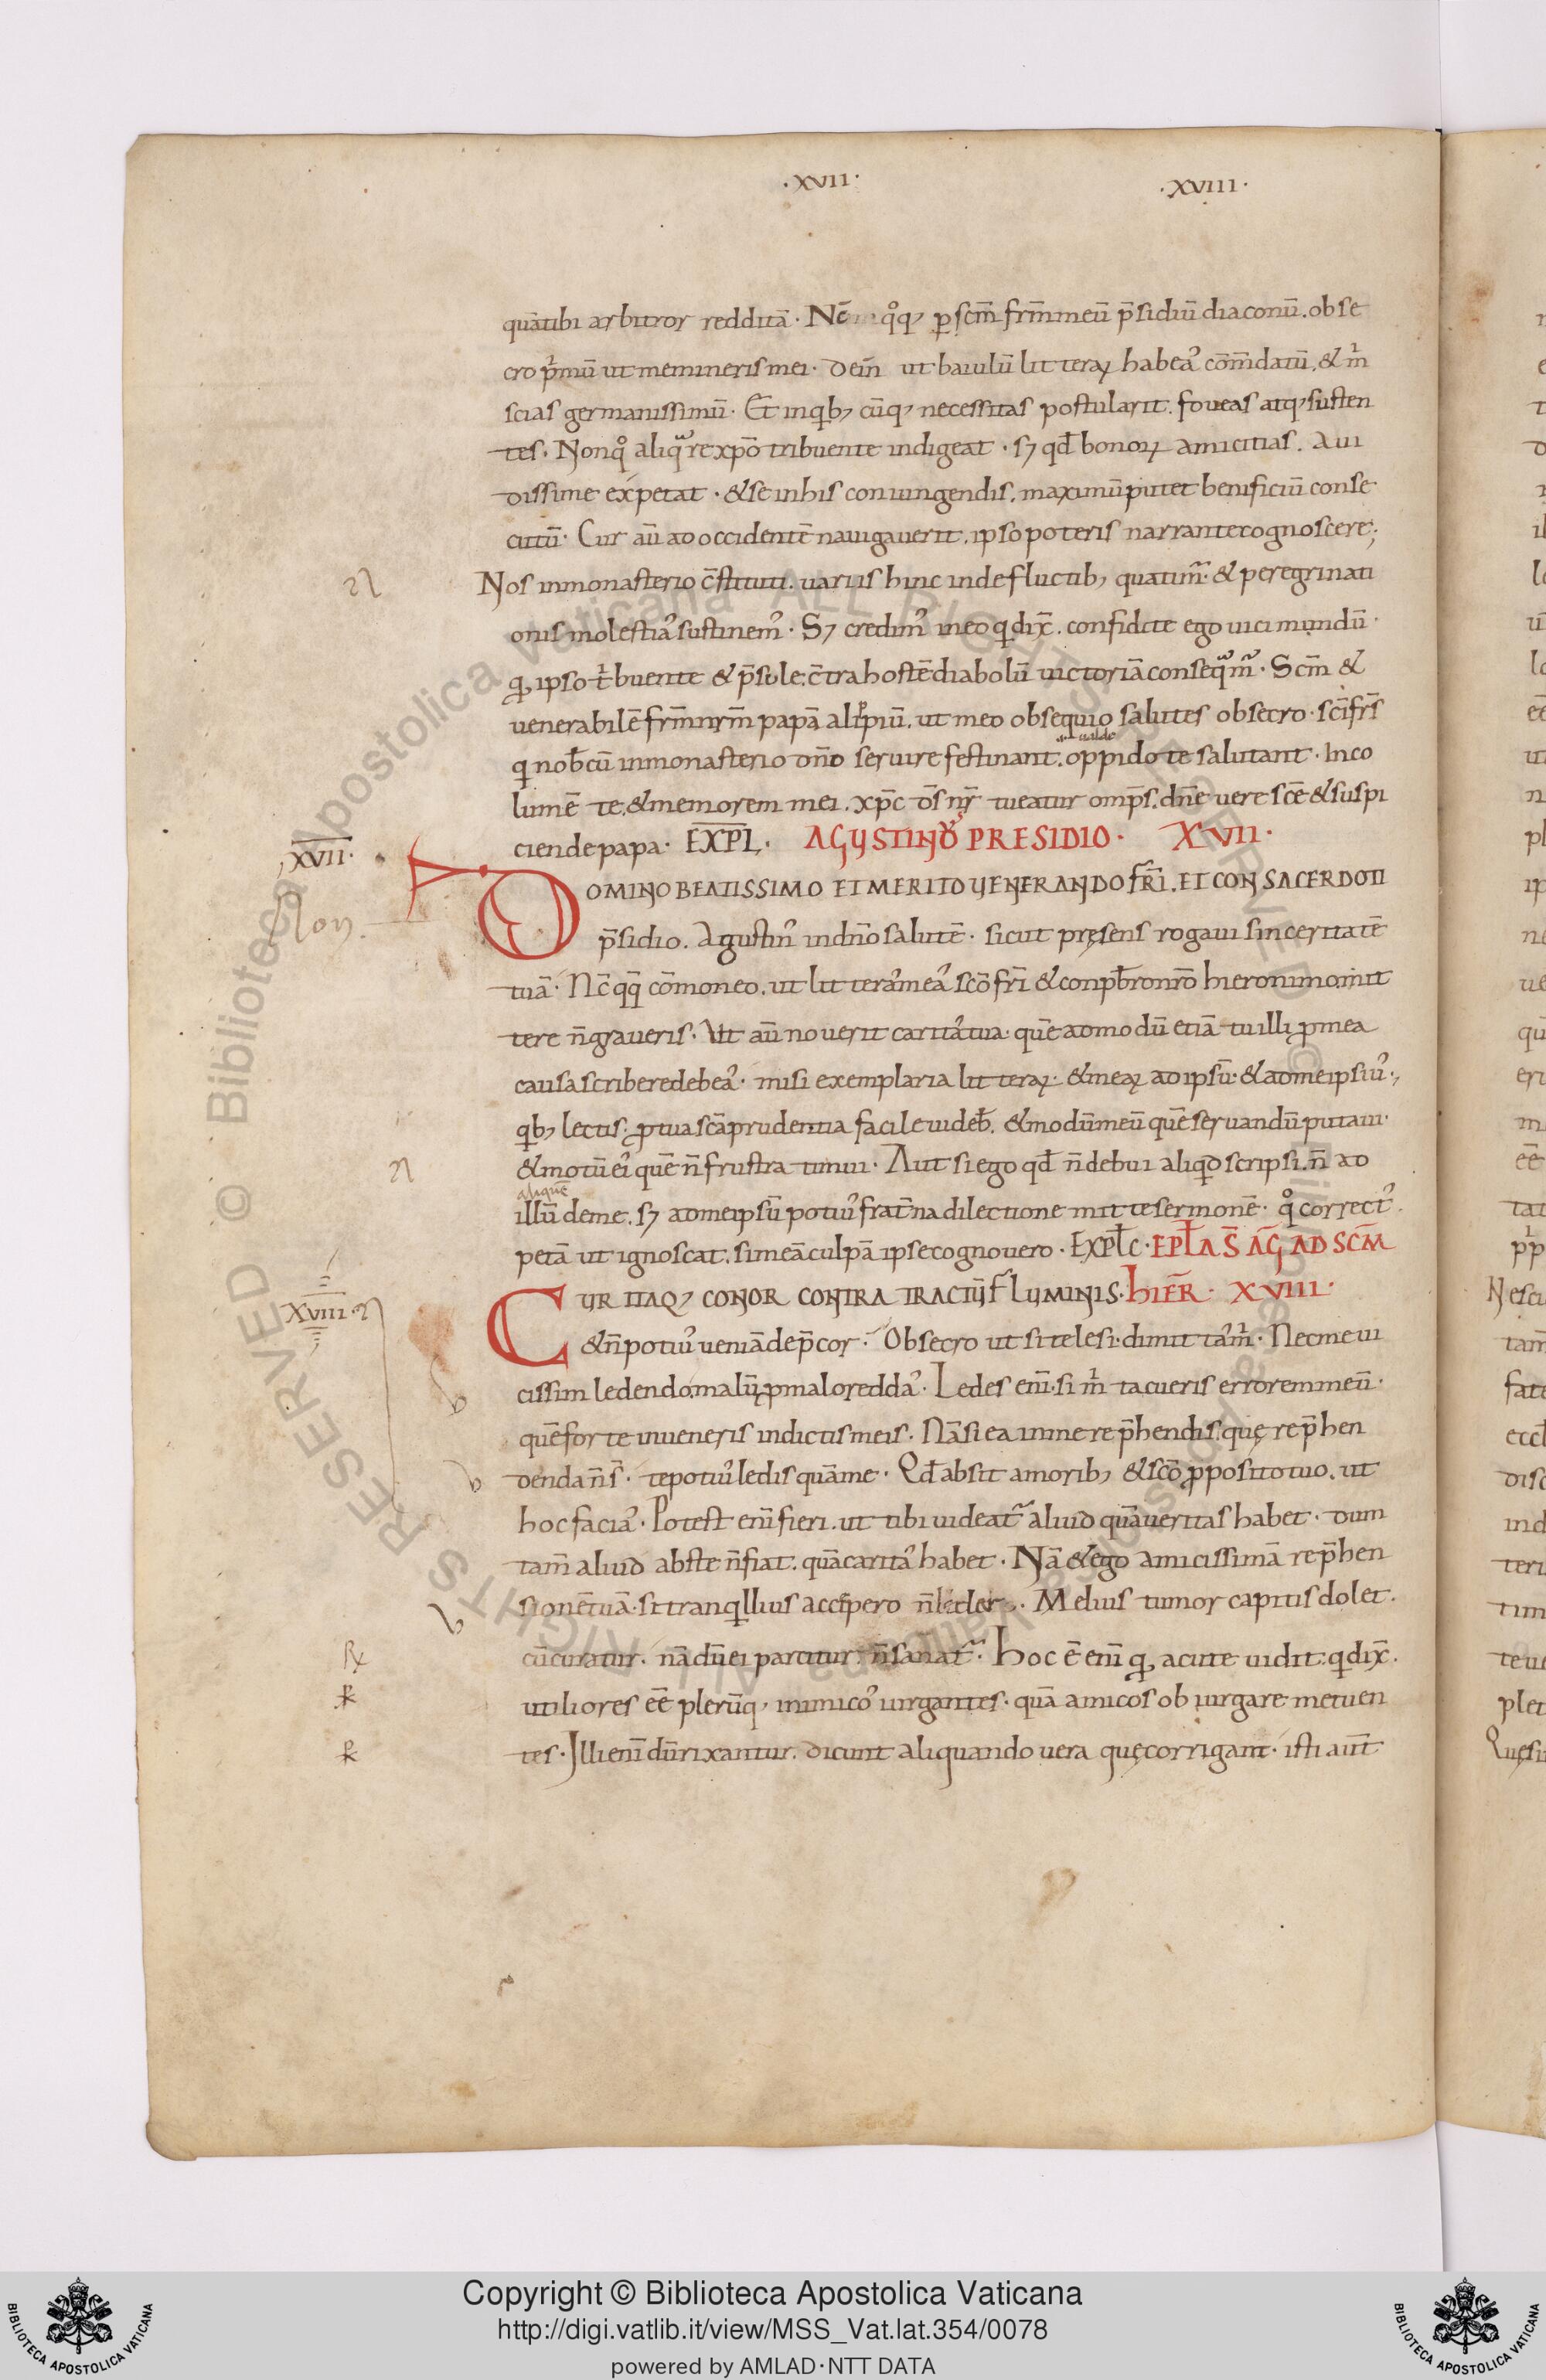 ·XVII· ·XVIII·
quātibi arbitror redditā · Nc̄ qͦq; ꝑ scm̄ frm̄ meū p̄sidiū diaconū. obse
cro p̍mū ut memineris mei · dein̄ ut baiulū litteraꝝ habeaˀ cōm̄datū. & m̍
scias germanissimū · Et inqb; cūq; necessitas postularit. foveas atq; susten
tes. Nonqͦ aliqᷓ re xp̄o tribuente indigeat · sꝫ qđ bonoꝝ amicitias. Aui
dissime expetat · & se inhis coniungendis. maximū putet benificiū conse
cutū · Cur aū ad occidentē nauigauerit. ipso poteris narrante cognoscere;
Nos inmonasterio c̄stituti. uariis hinc inde fluctib; quatimᷓ · & peregrinati
onis molestiaˀ sustinemˀ · Sꝫ credimˀ ineo q dix̄. confidite ego uici mundū ·
q, ipso t̍buente & p̄sule. c̄tra hostē diabolū uictoriā conseqᷓmᷓ · Scm̄ &
venerabilē frm̄ nrm̄ papā alipiū. ut meo obsequio salutes obsecro · sc̄i fr̄s
q nob̄cū inmonasterio dn̄o seruire festinant. oppido te salutant · Inco
ualde
lumē te. & memorem mei. xp̄c d̄s nr̄ tueatur omp̄s. dn̄e uere sc̄e & suspi
ciende papa · EXPL̄. AGUSTINUˀ PRESIDIO · XVII ·
XVII·
DOMINO BEATISSIMO ET MERITO UENERANDO FR̄I. ET CONSACERDOTI
p̄sidio. Agustinˀ indn̄o salutē · sicut pręsens rogaui sinceritatē
tuā · Nc̄ qq̄ cōmoneo. ut litteraˀ meaˀ sc̄o fr̄i & conpb̄ro nr̄o hieronimo mit
tere n̄ graueris. Ut aū nouerit caritaˀ tua · quē admodū etiā tu illi ꝓ mea
causa scribere debeaˀ · misi exemplaria litteraꝝ · & meaꝝ ad ipsū · & adme ipsiuˀ ·,
qb; lectis · ꝓ tua sc̄a prudentia facile uideb̄. & modū meū quē seruandū putaui ·
& motū eiˀ quē n̄ frustra timui · Aut si ego qđ n̄ debui aliqd scripsi. n̄ ad
aliquē
illū deme. sꝫ ad me ipsū potiuˀ frat̄na dilectione mitte sermonē · qͦ correctˀ.
petā ut ignoscat. si meā culpā ipse cognouero · EXPL̄C · EPL̄A S̄ AḠ AD SCM̄
CUR ITAQ; CONOR CONTRA TRACTŪ FLUMINIS · HIER̄ · XVIII ·
XVIII·
& n̄ potiuˀ ueniā dep̄cor · Obsecro ut si te lesi · dimittaˀ m̍ · Necme ui
cissim ledendo. malū ꝓ malo reddaˀ · Ledes enī · si m̍ tacueris errorem meū ·
quē forte inueneris indictis meis · Nā si ea inme rep̄hendis. quę rep̄hen
denda n̄ s̄ · te potiuˀ ledis quā me · Qđ absit amorib; & sc̄o ꝓposito tuo. ut
hoc faciaˀ · Potest enī fieri. ut tibi uideatᷓ aliud quā ueritas habet · dum
tam̄ aliud abste n̄ fiat. quā caritaˀ habet · Nā & ego amicissimā rep̄hen
sionē tuā · si tranqllius accepero n̄ leder. Melius tumor capitis dolet ·
cū curatur · nā dū ei parcitur · n̄ sanatᷓ · Hoc ē enī q, acute uidit: q dix̄ ·
utiliores eē plerūq; inimicoˀ iurgantes · quā amicos obiurgare metuen
tes · Illi enī dū rixantur. dicunt aliquando uera quę corrigant · isti aūt
© Biblioteca Apostolica Vaticana ALL RIGHTS RESERVED
Copyright © Biblioteca Apostolica Vaticana
http://digi.vatlib.it/view/MSS_Vat.lat.354/0078
powered by AMLAD·NTT DATA
BIBLIOTECA APOSTOLICA VATICANA
BIBLIOTECA APOSTOLICA VATICANA